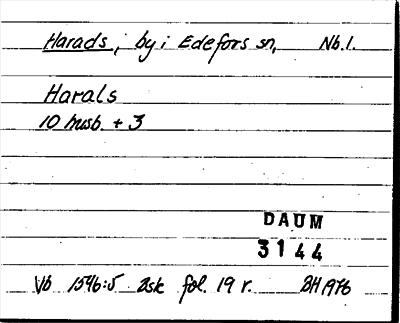 Harads, by i Edefors sn, Nb.l.
Harals
10 husb. + 3
DAUM
3144
Vb 1546:5 ask fol. 19 r. BH 1976